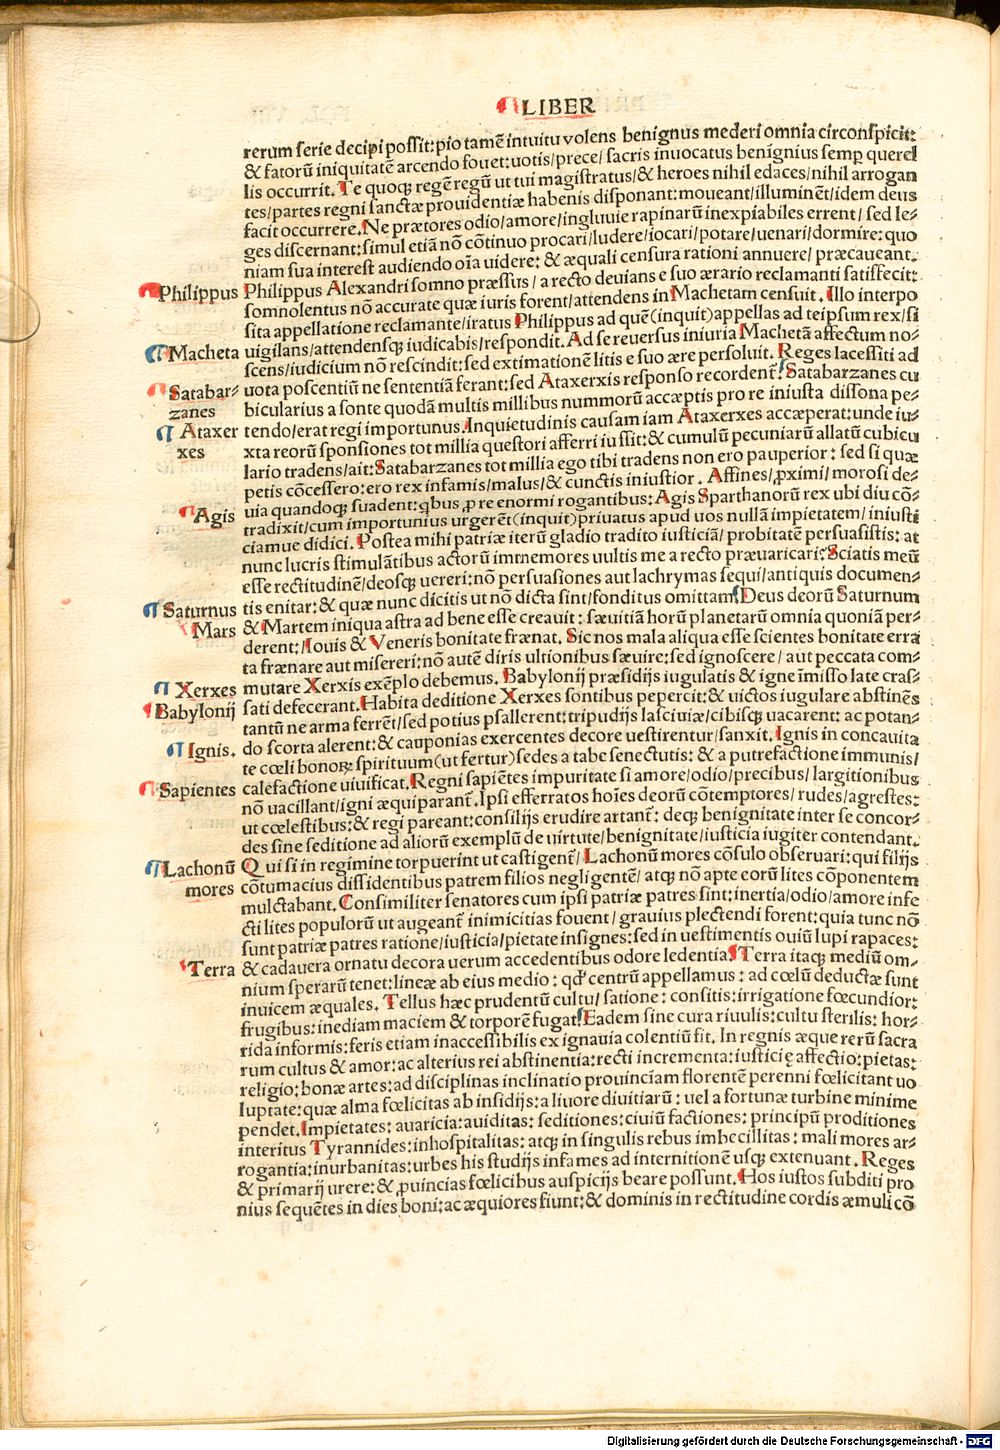 LIBER
rerum serie decipi possit: pio tamē intuitu volens benignus mederi omnia circonspicit:
& fatorū iniquitatē arcendo fouet: uotis/prece/ sacris inuocatus benignius semp querel
lis occurrit. Te quoqꝫ regē regū ut tui magistratus/& heroes nihil edaces/nihil arrogan
tes/partes regni sanctæ prouidentiæ habenis disponant: moueant/illuminēt/idem deus
facit occurrere. Ne prætores odio/amore/ingluuie rapinarū inexpiabiles errent/ sed le⸗
ges discernant: simul etiā nō cōtinuo procari/ludere/iocari/potare/uenari/dormire: quo
niam sua interest audiendo oīa uidere: & æquali censura rationi annuere/ præcaueant.
Philippus Philippus Alexandri somno præssus/ a recto deuians e suo ærario reclamanti satisfecit:
somnolentus nō accurate quæ iuris forent/attendens in Machetam censuit. Illo interpo
sita appellatione reclamante/iratus Philippus ad quē (inquit) appellas ad teipsum rex/si
Macheta uigilans/attendensqꝫ iudicabis/respondit. Ad se reuersus iniuria Machetā affectum no⸗
scens/iudicium nō rescindit: sed extimationē litis e suo ære persoluit. Reges lacessiti ad
Satabar⸗ uota poscentiū ne sententiā ferant: sed Ataxerxis responso recordent̄. Satabarzanes cu
zanes bicularius a sonte quodā multis millibus nummorū accæptis pro re iniusta dissona pe⸗
Ataxer tendo/erat regi importunus. Inquietudinis causam iam Ataxerxes accæperat: unde iu⸗
xes xta reorū sponsiones tot millia questori afferri iussit: & cumulū pecuniarū allatū cubicu
lario tradens/ait: Satabarzanes tot millia ego tibi tradens non ero pauperior: sed si quæ
petis cōcessero: ero rex infamis/malus/& cunctis iniustior. Affines/ꝓximi/ morosi de⸗
uia quandoqꝫ suadent: qbus ꝓ re enormi rogantibus: Agis Sparthanorū rex ubi diu cō⸗
Agis tradixit/cum importunius urgerēt (inquit) priuatus apud uos nullā impietatem/ iniusti
ciamue didici. Postea mihi patriæ iterū gladio tradito iusticiā/ probitatē persuasistis: at
nunc lucris stimulātibus actorū immemores uultis me a recto præuaricari: Sciatis meū
esse rectitudinē/deosqꝫ uereri: nō persuasiones aut lachrymas sequi/antiquis documen⸗
Saturnus tis enitar: & quæ nunc dicitis ut nō dicta sint/fonditus omittam. Deus deorū Saturnum
Mars & Martem iniqua astra ad bene esse creauit: sæuitiā horū planetarū omnia quoniā per⸗
derent: Iouis & Veneris bonitate frænat. Sic nos mala aliqua esse scientes bonitate errā
ta frænare aut misereri: nō autē diris ultionibus sæuire: sed ignoscere/ aut peccata com⸗
Xerxes mutare Xerxis exēplo debemus. Babylonij præsidijs iugulatis & igne īmisso late cras⸗
Babylonij sati defecerant. Habita deditione Xerxes sontibus pepercit: & uictos iugulare abstinēs
tantū ne arma ferrēt/sed potius psallerent: tripudijs lasciuiæ/cibisqꝫ uacarent: ac potan⸗
Ignis. do scorta alerent: & cauponias exercentes decore uestirentur/sanxit. Ignis in concauita
te cœli bonoꝝ spirituum (ut fertur) sedes a tabe senectutis: & a putrefactione immunis/
Sapientes calefactione uiuificat. Regni sapiētes impuritate si amore/odio/precibus/ largitionibus
nō uacillant/igni æquiparant̄. Ipsi efferratos hoīes deorū cōtemptores/ rudes/agrestes:
ut cœlestibus: & regi pareant: consilijs erudire artant̄: deqꝫ benignitate inter se concor⸗
des sine seditione ad aliorū exemplū de uirtute/benignitate/iusticia iugiter contendant.
Lachonū Qui si in regimine torpuerint ut castigent̄/ Lachonū mores cōsulo obseruari: qui filijs
mores cōtumacius dissidentibus patrem filios negligentē/ atqꝫ nō apte eorū lites cōponentem
mulctabant. Consimiliter senatores cum ipsi patriæ patres sint: inertia/odio/amore infe
cti lites populorū ut augeant̄ inimicitias fouent/ grauius plectendi forent: quia tunc nō
sunt patriæ patres ratione/iusticia/pietate insignes: sed in uestimentis ouiū lupi rapaces:
Terra & cadauera ornatu decora uerum accedentibus odore ledentia. Terra itaqꝫ mediū om⸗
nium sperarū tenet: lineæ ab eius medio: qd' centrū appellamus: ad cœlū deductæ sunt
inuicem æquales. Tellus hæc prudentū cultu/ satione: consitis: irrigatione fœcundior:
frugibus: inediam maciem & torporē fugat. Eadem sine cura riuulis: cultu sterilis: hor⸗
rida informis: feris etiam inaccessibilis ex ignauia colentiū fit. In regnis æque rerū sacra
rum cultus & amor: ac alterius rei abstinentia: recti incrementa: iusticię affectio: pietas:
religio: bonæ artes: ad disciplinas inclinatio prouinciam florentē perenni fœlicitant uo
luptate: quæ alma fœlicitas ab insidijs: a liuore diuitiarū: uel a fortunæ turbine minime
pendet. Impietates: auaricia: auiditas: seditiones: ciuiū factiones: principū proditiones
interitus Tyrannides: inhospitalitas: atqꝫ in singulis rebus imbecillitas: mali mores ar⸗
rogantia: inurbanitas: urbes his studijs infames ad internitionē usqꝫ extenuant. Reges
& primarij urere: & ꝓuincias fœlicibus auspicijs beare possunt. Hos iustos subditi pro
nius sequētes in dies boni: ac æquiores fiunt: & dominis in rectitudine cordis æmuli cō
Digitalisierung gefördert durch die Deutsche Forschungsgemeinschaft - DFG